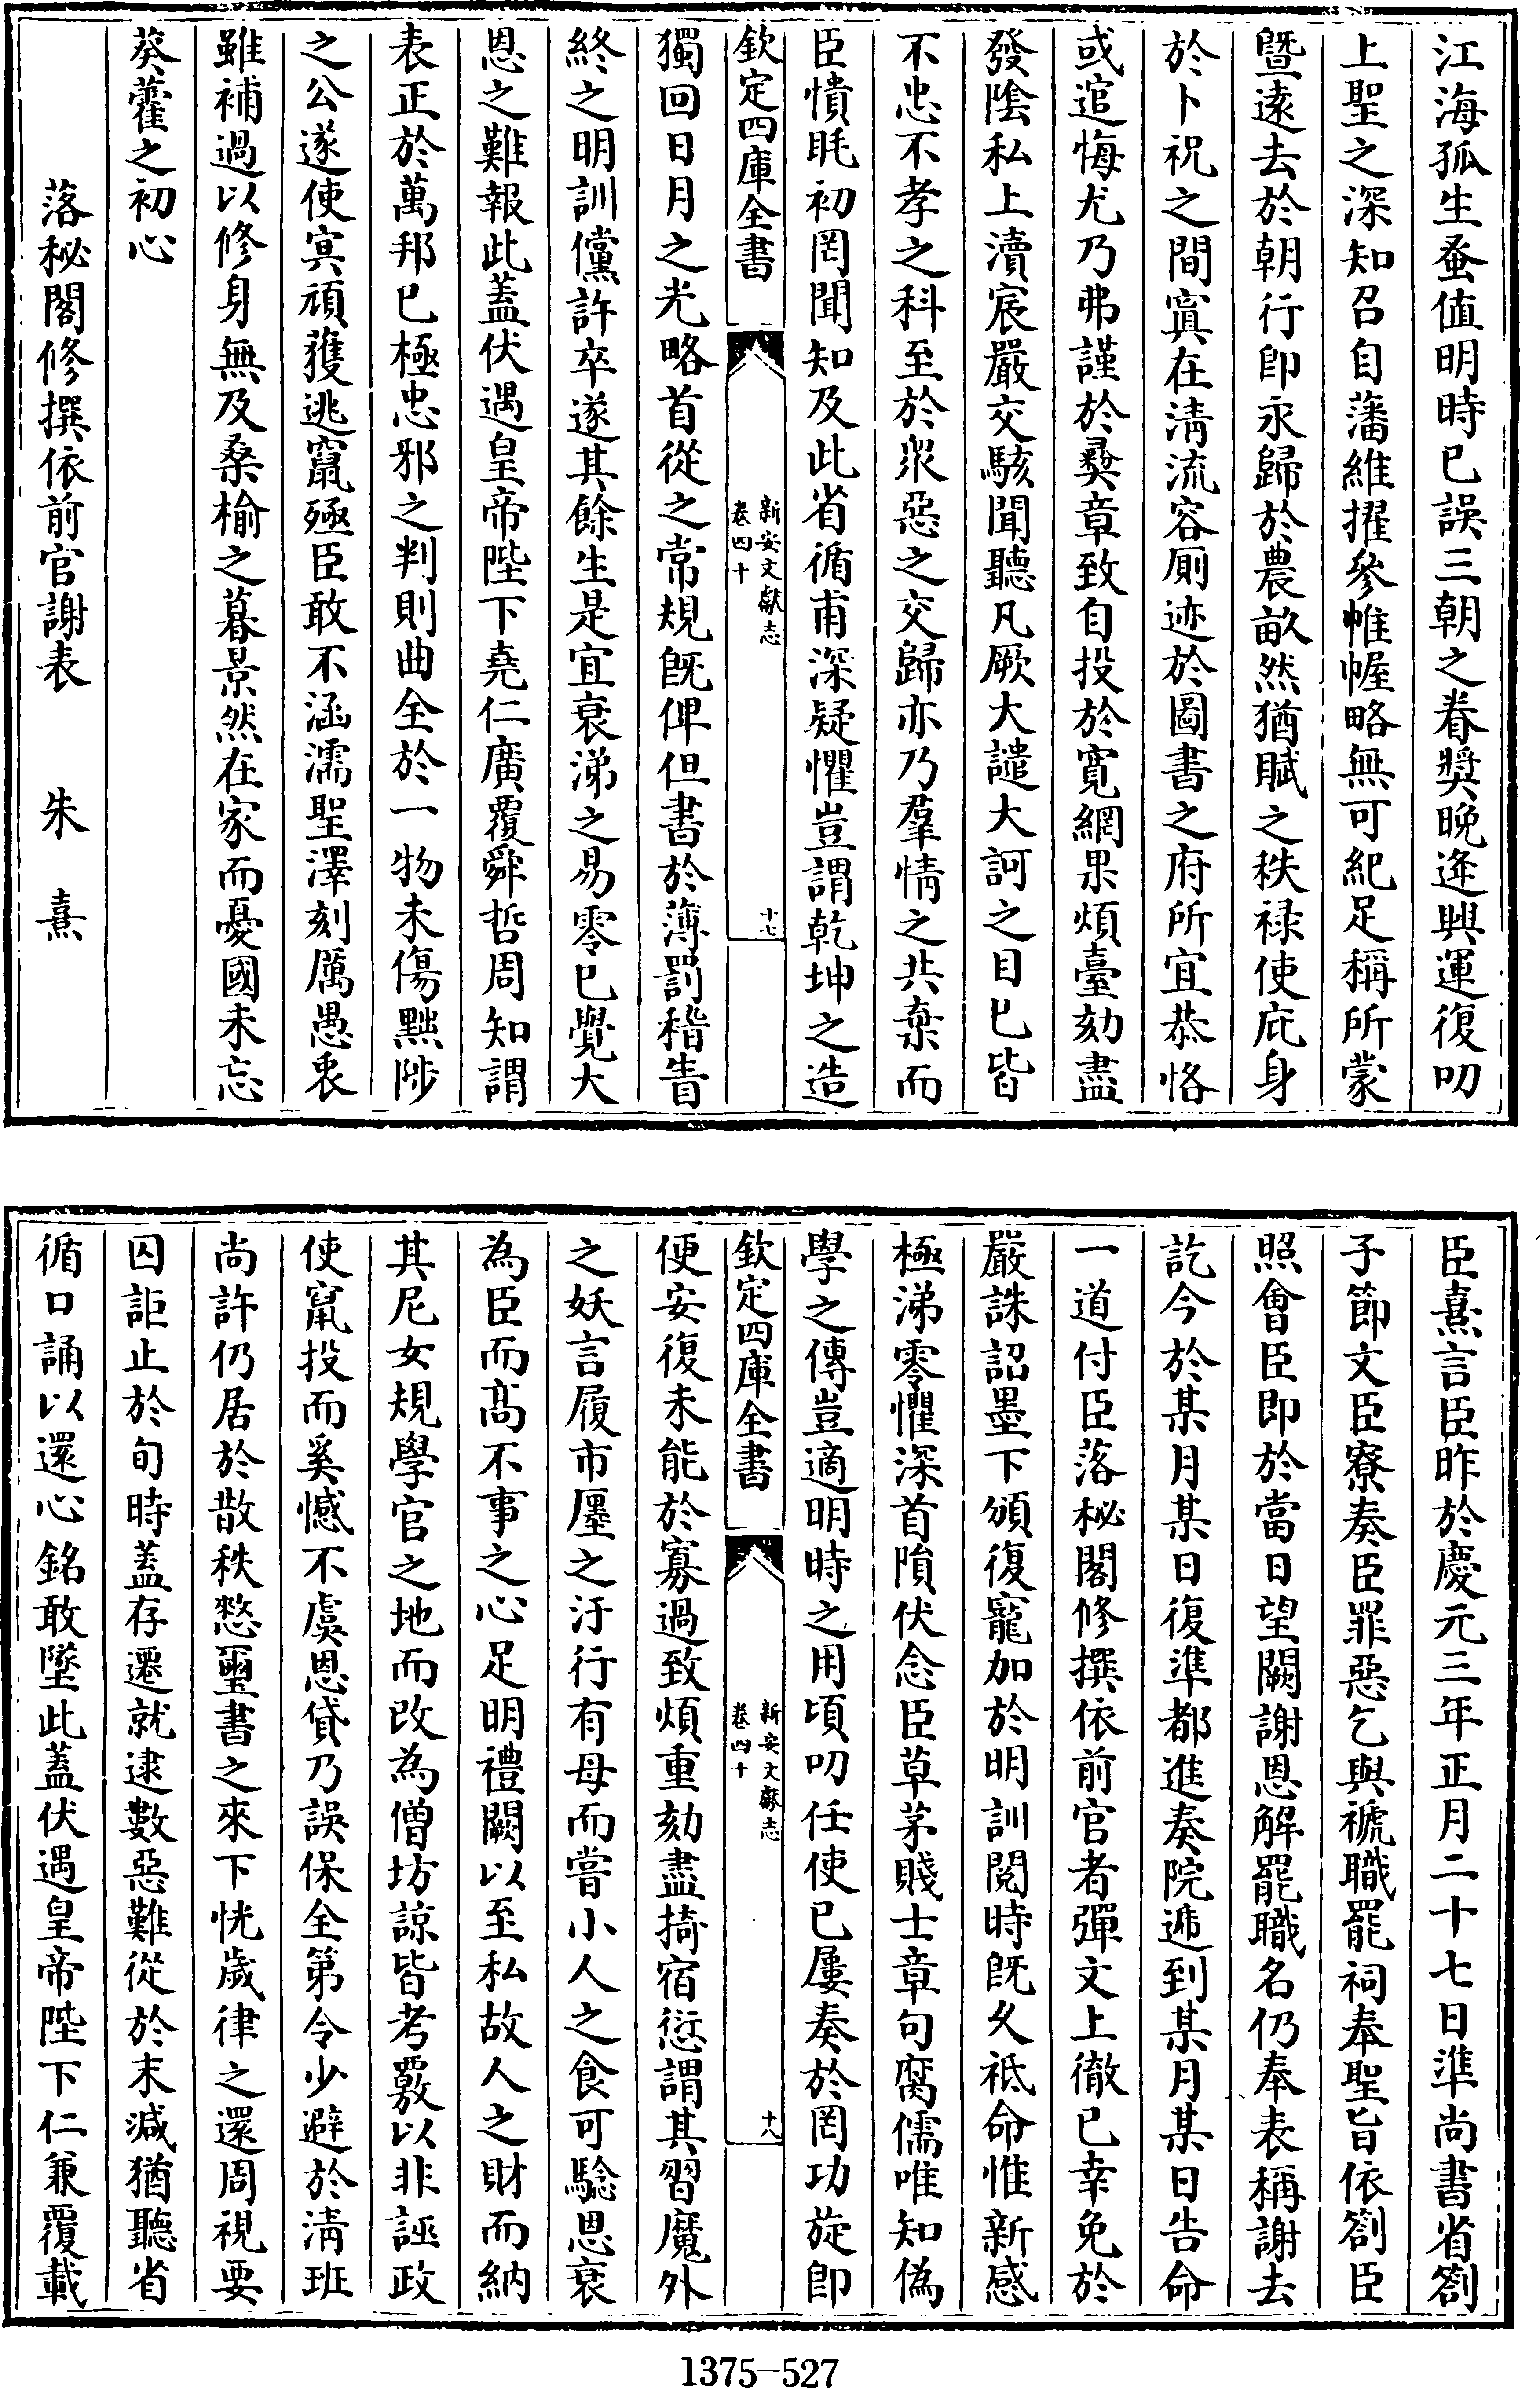 江海孤生蚤值明時已誤三朝之眷奬晚逢興運復叨
上聖之深知召自藩維擢參帷幄略無可紀足稱所蒙
曁逺去於朝行卽永歸於農畝然猶賦之秩禄使庇身
於卜祝之間寘在清流容厠迹於圖書之府所宜恭恪
或逭悔尤乃弗謹於彛章致自投於寛網果煩臺劾盡
發隂私上瀆宸嚴交駭聞聽凡厥大譴大訶之目已皆
不忠不孝之科至於衆惡之交歸亦乃羣情之共棄而
臣憒眊初罔聞知及此省循甫深疑懼豈謂乾坤之造
欽定四庫全書
新安文獻志
卷四十
十七
獨回日月之光略首從之常規旣俾但書於薄罰稽眚
終之明訓儻許卒遂其餘生是宜衰涕之易零已覺大
恩之難報此蓋伏遇皇帝陛下堯仁廣覆舜哲周知謂
表正於萬邦已極忠邪之判則曲全於一物未傷黜陟
之公遂使㝠頑獲逃竄殛臣敢不涵濡聖澤刻厲愚衷
雖補過以修身無及桑榆之暮景然在家而憂國未忘
葵藿之初心
落秘閣修撰依前官謝表　朱熹
臣熹言臣昨於慶元三年正月二十七日準尚書省劄
子節文臣寮奏臣罪惡乞與褫職罷祠奉聖旨依劄臣
照會臣即於當日望闕謝恩解罷職名仍奉表稱謝去
訖今於某月某日復準都進奏院逓到某月某日告命
一道付臣落秘閣修撰依前官者彈文上徹已幸免於
嚴誅詔墨下頒復寵加於明訓閱時旣久祗命惟新感
極涕零懼深首隕伏念臣草茅賤士章句腐儒唯知偽
學之傳豈適明時之用頃叨任使已屢奏於罔功旋即
欽定四庫全書
新安文獻志
卷四十
十八
便安復未能於寡過致煩重劾盡掎宿愆謂其習魔外
之妖言履市廛之汙行有母而嘗小人之食可騐恩衰
為臣而髙不事之心足明禮闕以至私故人之財而納
其尼女規學官之地而改為僧坊諒皆考覈以非誣政
使竄投而奚憾不虞恩貸乃誤保全第令少避於清班
尚許仍居於散秩憗璽書之來下恍嵗律之還周視要
囚詎止於旬時蓋存遷就逮數惡難從於末減猶聽省
循口誦以還心銘敢墜此蓋伏遇皇帝陛下仁兼覆載
1375-527